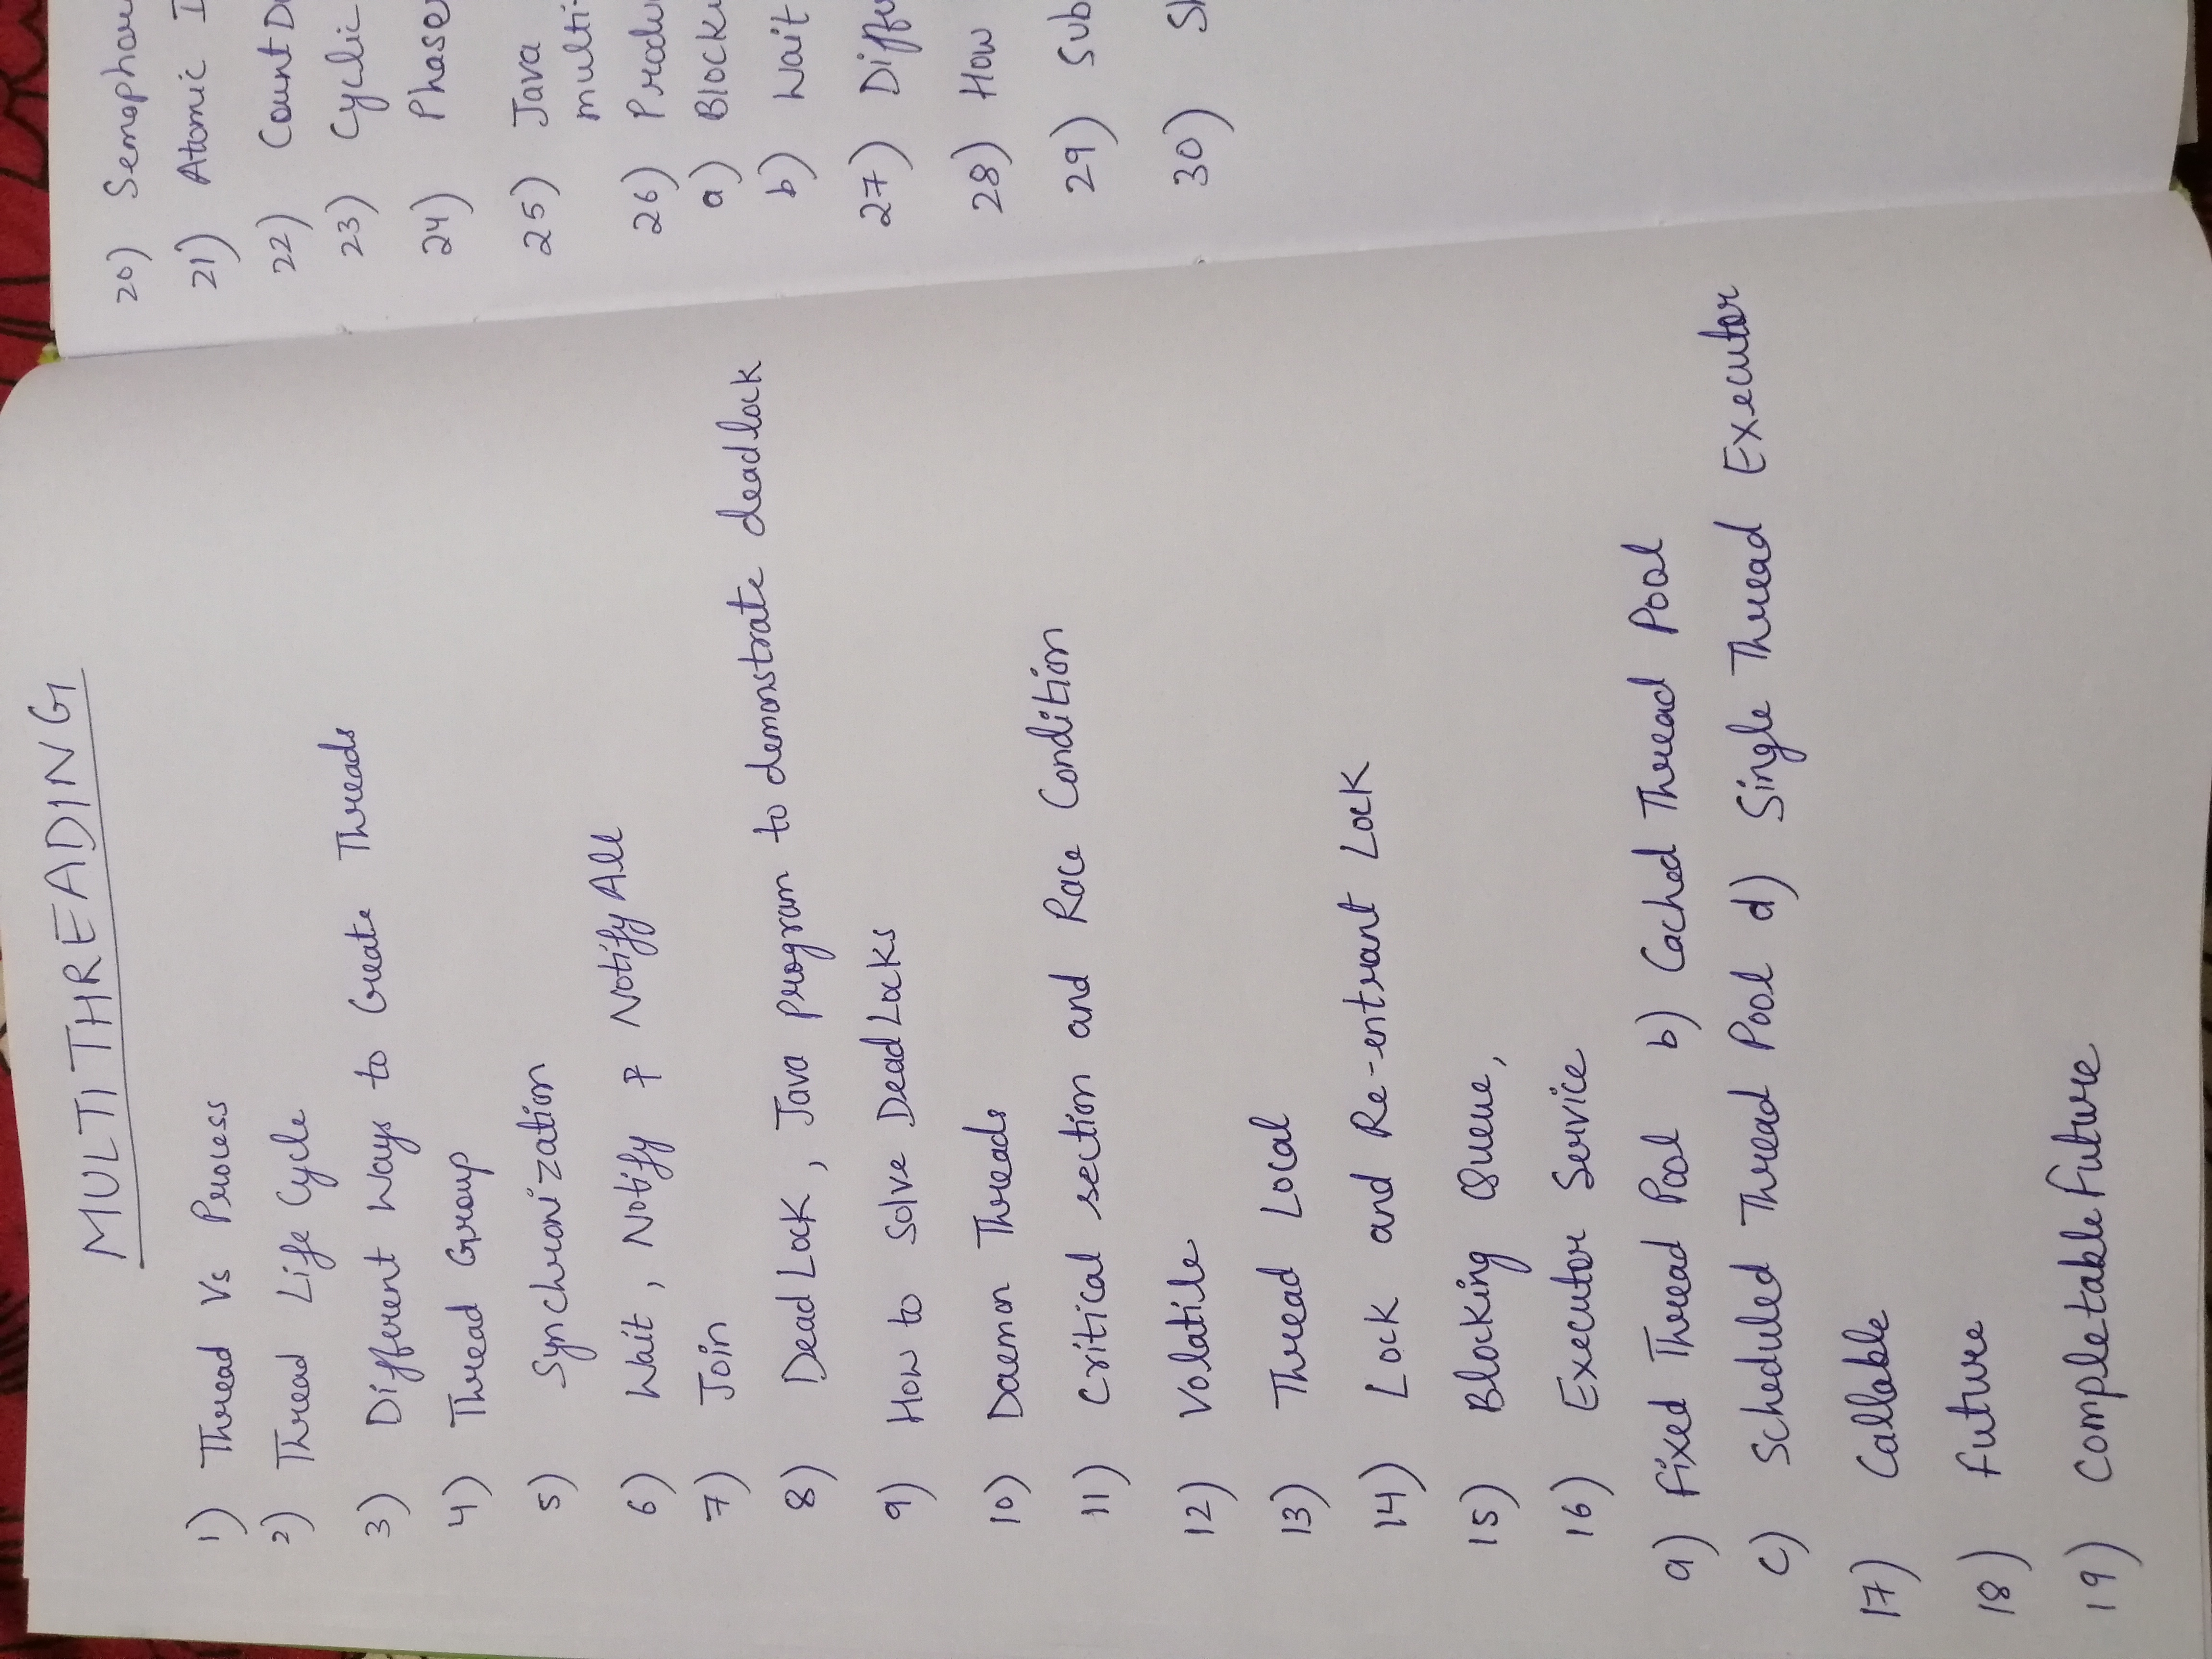 MULTITHREADING
1) Thread Vs Process
2) Thread Life Cycle
3) Different Ways to Create Threads
4) Thread Group
5) Synchronization
6) Wait, Notify & Notify All
7) Join
8) Dead Lock, Java program to demonstrate deadlock
9) How to solve Dead Locks
10) Daemon Threads
11) Critical section and Race Condition
12) Volatile
13) Thread Local
14) Lock and Re-entrant Lock
15) Blocking Queue,
16) Executor Service
a) Fixed Thread Pool b) Cached Thread Pool
c) Scheduled Thread Pool d) Single Thread Executor
17) Callable
18) Future
19) CompletableFuture
20) Semaphore
21) Atomic I
22) Count D
23) Cyclic
24) Phase
25) Java
multi-
26) Produ
a) Block
b) Wait
27) Diff
28) How
29) Sub
30)